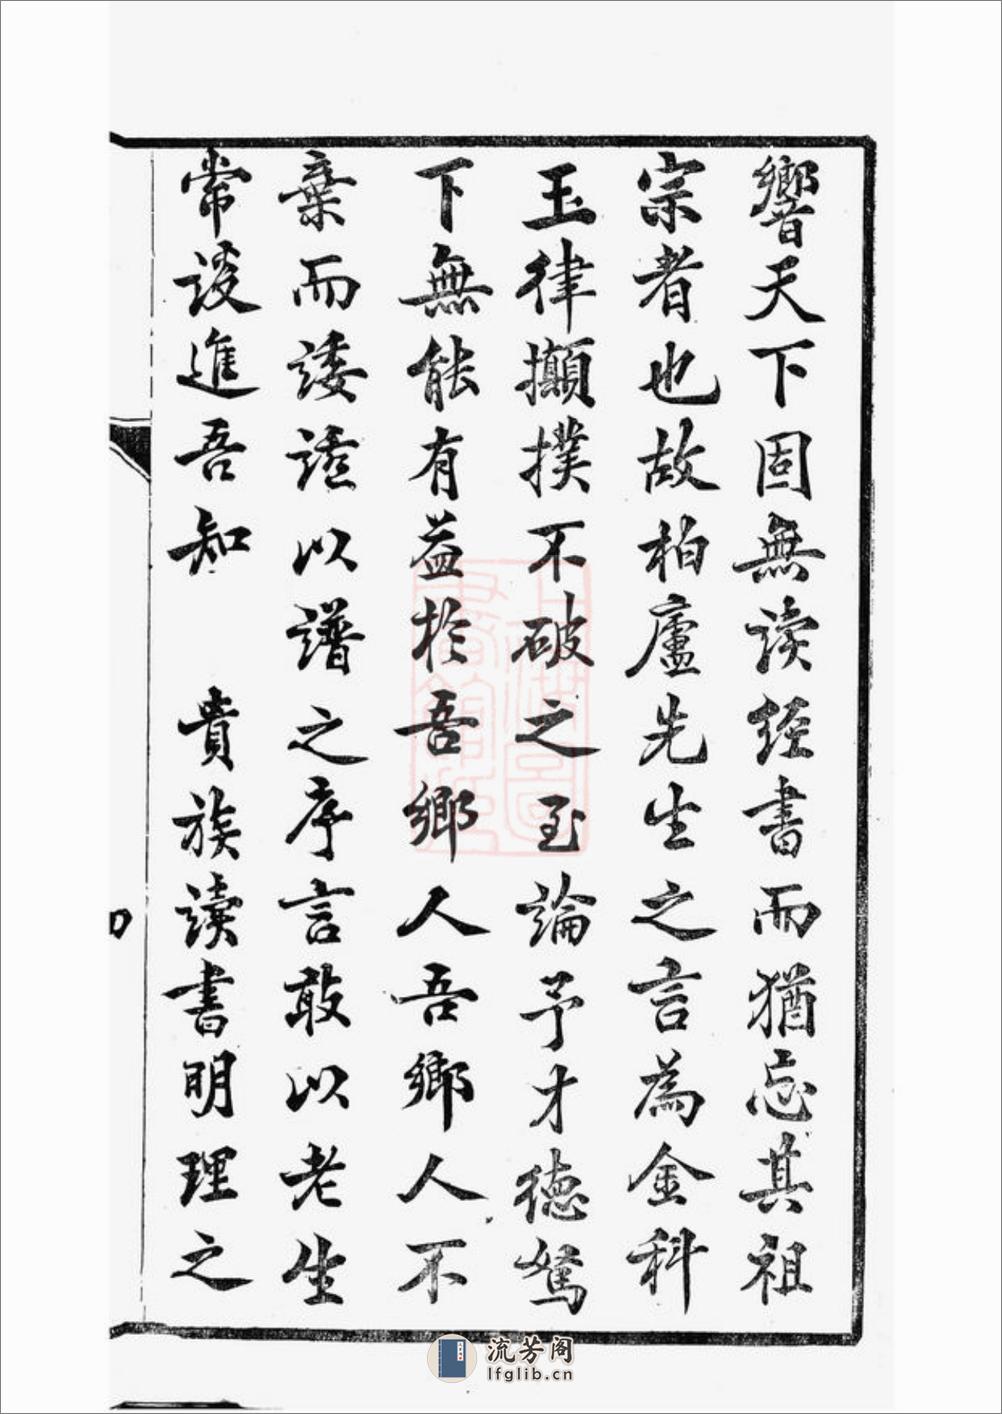 響天下固無读经書而猶忘其祖
宗者也故柏廬先生之言為金科
玉律攧撲不破之至論予才德駑
下無能有益於吾鄉人吾鄉人不
棄而諉諈以譜之序言敢以老生
常谈進吾知　貴族读書明理之
流芳阁
lfglib.cn